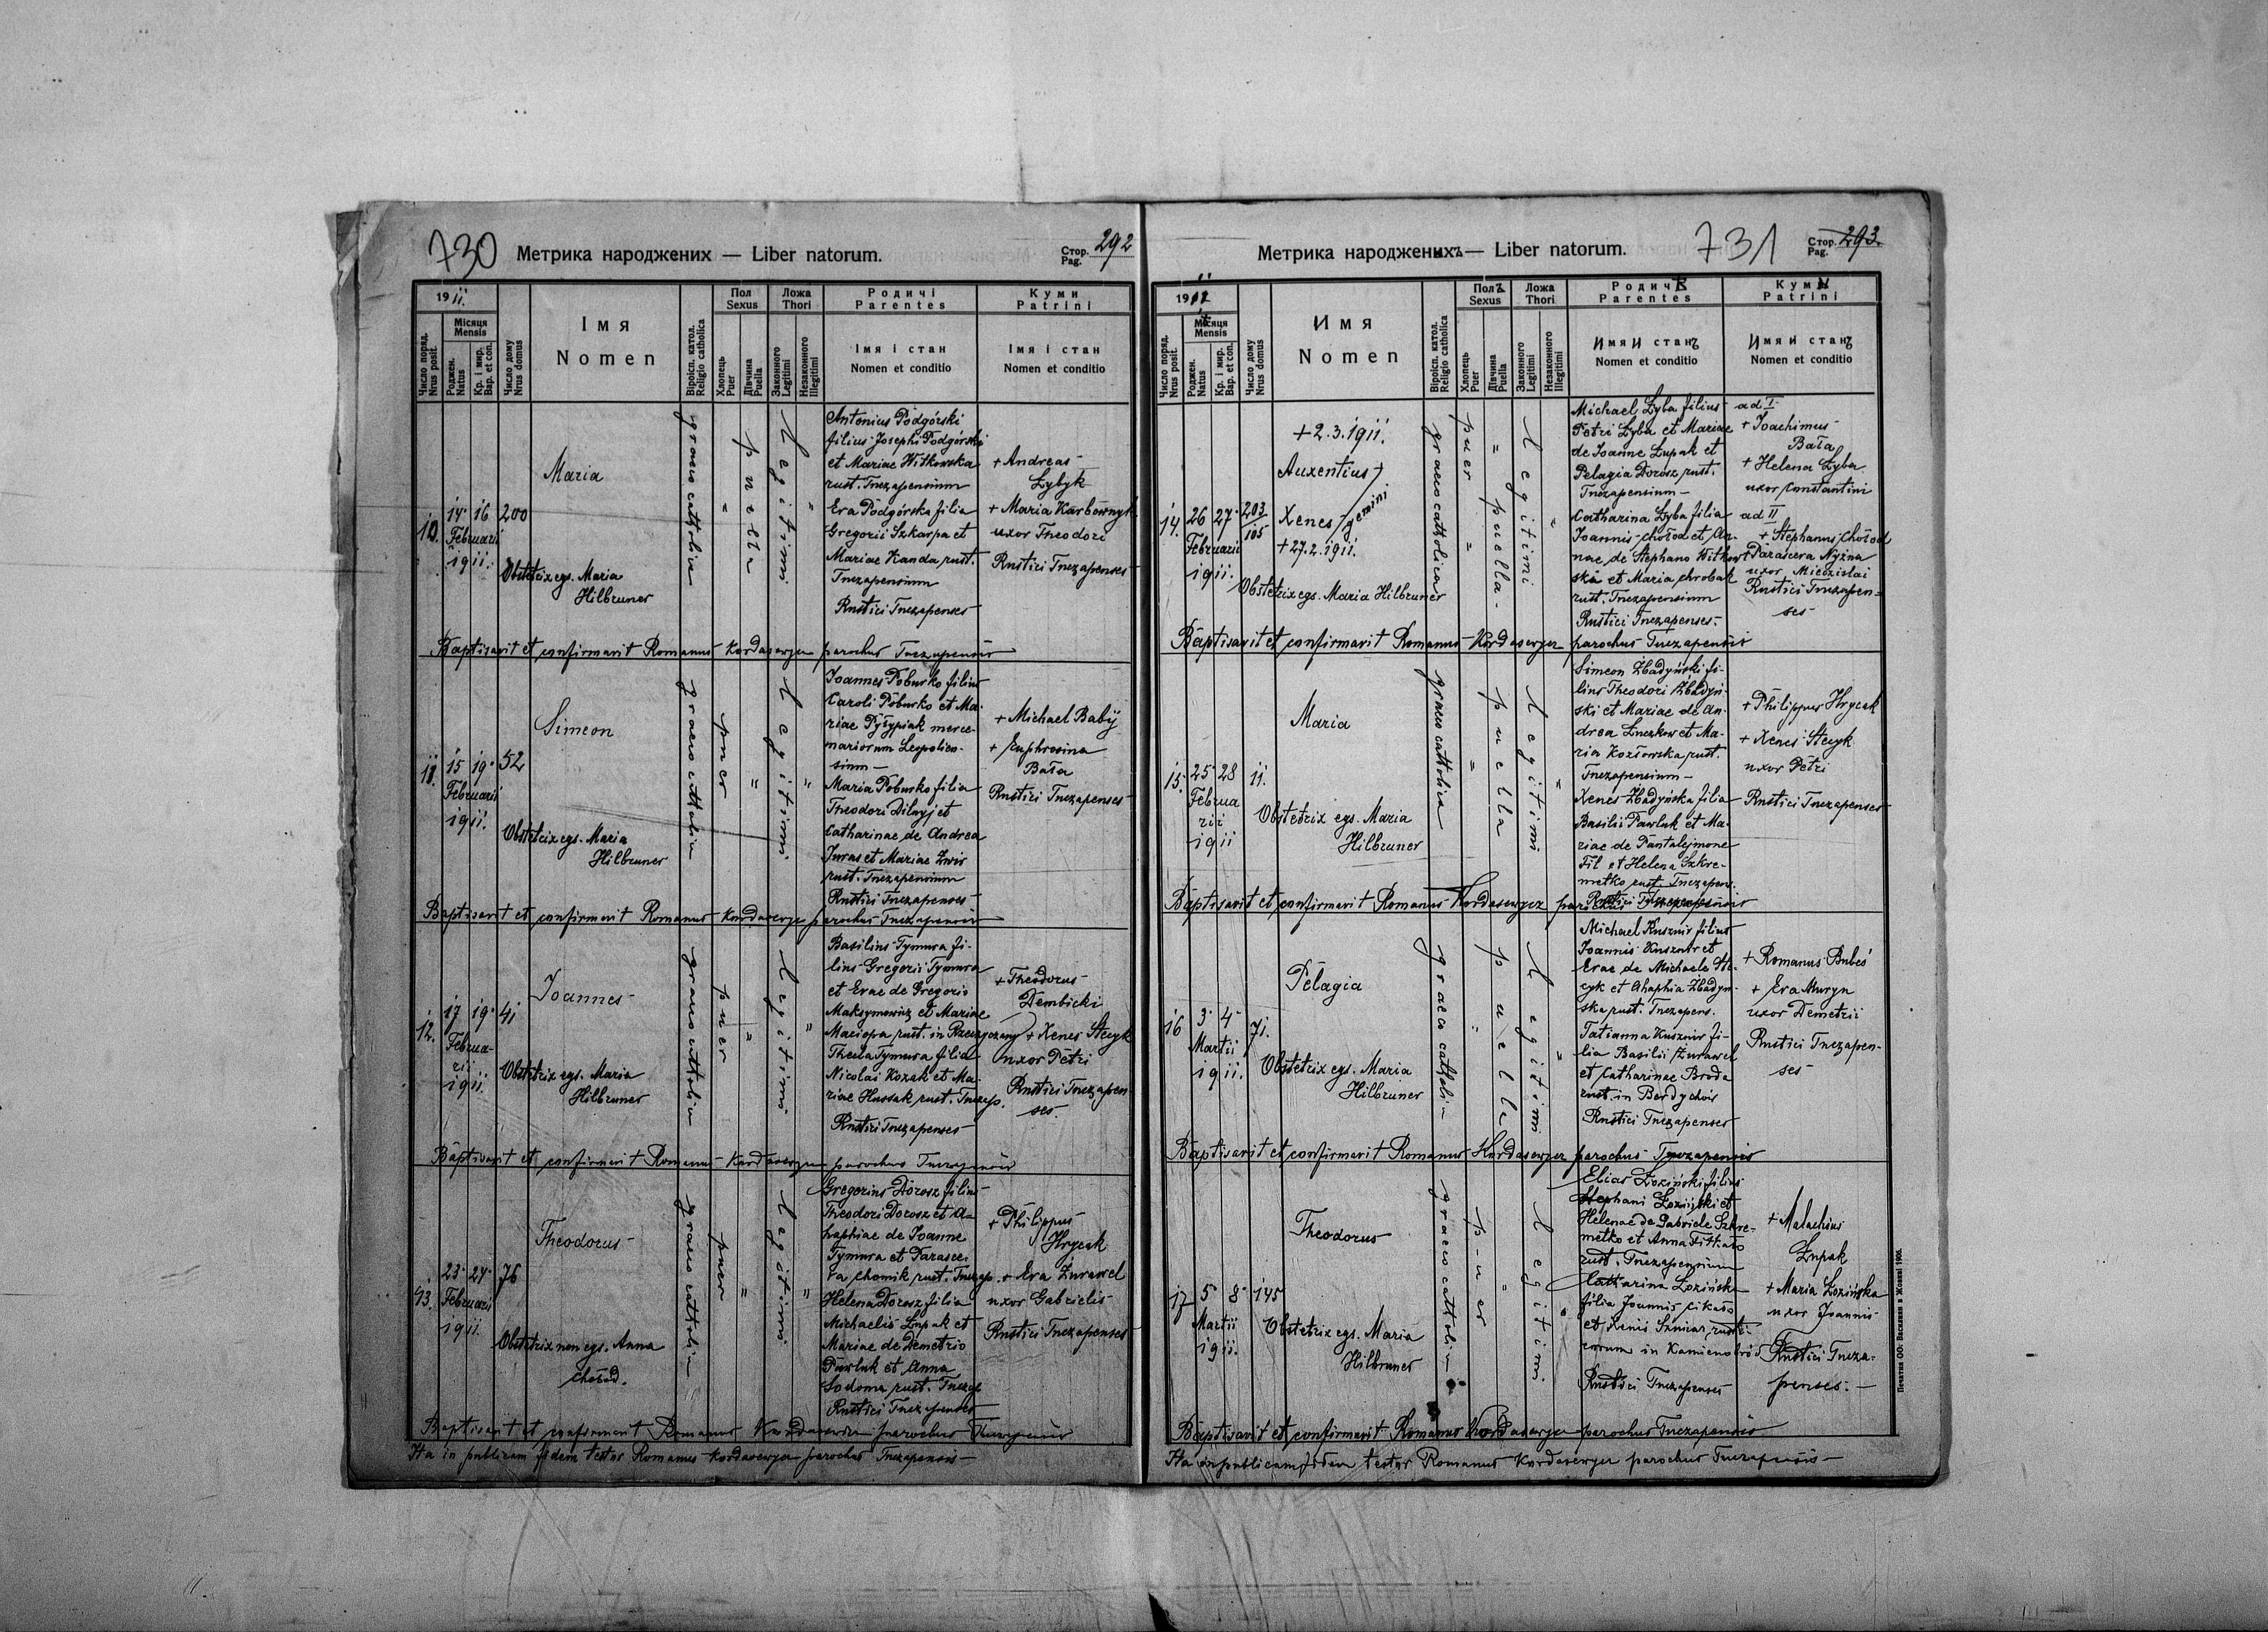 730 Метрика народжених — Liber natorum. Стор. Pag. 292
1911.
Число поряд. Nrus posit.
Місяця Mensis
Роджен. Natus
Кр. і мир. Bap. et con.
Число дому Nrus domus
Імя Nomen
Віроісп. катол. Religio catholica
Пол Sexus
Хлопець Puer
Дівчина Puella
Ложа Thori
Законного Legitimi
Незаконного Illegitimi
Родичі Parentes
Імя і стан Nomen et conditio
Куми Patrini
Імя і стан Nomen et conditio
10.
14 16 200
Februarii
1911.
Maria
Obstetrix egs. Maria
Hilbruner
graeco catholica
puella
Legitimi
Antonius Podgórski
filius Josephi Podgórski
et Mariae Witkowska
rust. Tnezapensium
Eva Podgórska filia
Gregorii Szkarpa et
Mariae Kanda rust.
Tnezapensium
Rustici Tnezapenses
+ Andreas
Zybyk
+ Maria Karbownyk
uxor Theodori
Rustici Tnezapenses
Baptisavit et confirmavit Romanus Kordasewycz parochus Tnezapensis
11.
15 19 52
Februarii
1911.
Simeon
Obstetrix egs. Maria
Hilbruner
graeco catholica
puer
Legitimi
Joannes Poburko filius
Caroli Poburko et Ma-
riae Pyłypiak merce-
nariorum Leopolien-
sium
Maria Poburko filia
Theodori Dilnyj et
Catharinae de Andrea
Juras et Mariae Zwir
rust. Tnezapensium
Rustici Tnezapenses
+ Michael Babij
+ Euphrosina
Bała
Rustici Tnezapenses
Baptisavit et confirmavit Romanus Kordasewycz parochus Tnezapensis
12.
17 19 41
Februa-
rii
1911.
Joannes
Obstetrix egs. Maria
Hilbruner
graeco catholica
puer
Legitimi
Basilius Tymura fi-
lius Gregorii Tymura
et Evae de Gregorio
Maksymowicz et Mariae
Maciopa rust. in Rzeczyczany
Thecla Tymura filia
Nicolai Kozak et Ma-
riae Hussak rust. Tnezap.
Rustici Tnezapenses
+ Theodorus
Dembicki
+ Xenes Stecyk
uxor Petri
Rustici Tnezapen-
ses.
Baptisavit et confirmavit Romanus Kordasewycz parochus Tnezapensis
13.
23 24 76
Februarii
1911.
Theodorus
Obstetrix non egs. Anna
Chołod.
graeco catholica
puer
Legitimi
Gregorius Dorosz filius
Theodori Dorosz et A-
haphiae de Joanne
Tymura et Parasce-
va Chomik rust. Tnezap.
Helena Dorosz filia
Michaelis Łupak et
Mariae de Demetrio
Pawluk et Anna
Sodoma rust. Tnezap.
Rustici Tnezapenses
+ Philippus
Hrycak
+ Eva Żurawel
uxor Gabrielis
Rustici Tnezapenses
Baptisavit et confirmavit Romanus Kordasewycz parochus Tnezapensis
Ita in publicam fidem testor Romanus Kordasewycz parochus Tnezapensis
Метрика народженыхъ — Liber natorum. 731 Стор. Pag. 293.
1911
Число поряд. Nrus posit.
Місяця Mensis
Роджен. Natus
Кр. і мир. Bap. et con.
Число дому Nrus domus
Имя Nomen
Віроісп. катол. Religio catholica
Полъ Sexus
Хлопець Puer
Дівчина Puella
Ложа Thori
Законного Legitimi
Незаконного Illegitimi
Parentes
Имя и станъ Nomen et conditio
Кумы Patrini
Имя и станъ Nomen et conditio
14.
26 27 203/105
Februarii
1911.
+ 2.3.1911.
Auxentius
Xenes gemini
+ 27.2.1911.
Obstetrix egs. Maria Hilbruner
graeco catholica
puer
puella
Legitimi
Michael Zyba filius
Petri Zyba et Mariae
de Joanne Łupak et
Pelagia Dorosz rust.
Tnezapensium
Catharina Zyba filia
Joannis Chołod et An-
nae de Stephano Witkow-
ski et Maria Chrobak
rust. Tnezapensium
Rustici Tnezapenses
ad I
+ Joachimus
Bała
+ Helena Zyba
uxor Constantini
ad II
+ Stephanus Chołod
+ Parasceva Nyżna
uxor Miecislai
Rustici Tnezapen-
ses
Baptisavit et confirmavit Romanus Kordasewycz parochus Tnezapensis
15.
25 28 11.
Februa
rii
1911
Maria
Obstetrix egs. Maria
Hilbruner
graeco catholica
puella
Legitimi
Simeon Zbadyński fi-
lius Theodori Zbadyń-
ski et Mariae de An-
drea Łuczkow et Ma-
ria Kozłowska rust.
Tnezapensium
Xenes Zbadyńska filia
Basilii Pawluk et Ma-
riae de Pantalejmone
Fil et Helena Szkre-
metko rust. Tnezapen.
Rustici Tnezapenses
+ Philippus Hrycak
+ Xenes Stecyk
uxor Petri
Rustici Tnezapenses
Baptisavit et confirmavit Romanus Kordasewycz parochus Tnezapensis
16
3 4 71.
Martii
1911.
Pelagia
Obstetrix egs. Maria
Hilbruner
graeco catholica
puella
Legitimi
Michael Kusznir filius
Joannis Kusznir et
Evae de Michaele Ste-
cyk et Ahaphia Zbadyń-
ska rust. Tnezapens.
Tatianna Kusznir fi-
lia Basilii Żurawel
et Catharinae Broda
rust. in Berdychów
Rustici Tnezapenses
+ Romanus Bubeś
+ Eva Muryn
uxor Demetrii
Rustici Tnezapen-
ses
Baptisavit et confirmavit Romanus Kordasewycz parochus Tnezapensis
17
5 8 145
Martii
1911.
Theodorus
Obstetrix egs. Maria
Hilbruner
graeco catholica
puer
Legitimi
Elias Łoziński filius
Stephani Łoziński et
Helenae de Gabriele Szkre-
metko et Anna
rust. Tnezapensium
Catharina Łozińska
filia Joannis Cikało
et Xeniis rusti-
corum in Kamienobród
Rustici Tnezapenses
+ Malachius
Łupak
+ Maria Łozińska
uxor Joannis
Rustici Tneza-
penses.
Baptisavit et confirmavit Romanus Kordasewycz parochus Tnezapensis
Ita in publicam fidem testor Romanus Kordasewycz parochus Tnezapensis
Печатня ОО. Василиян в Жовкві 1906.